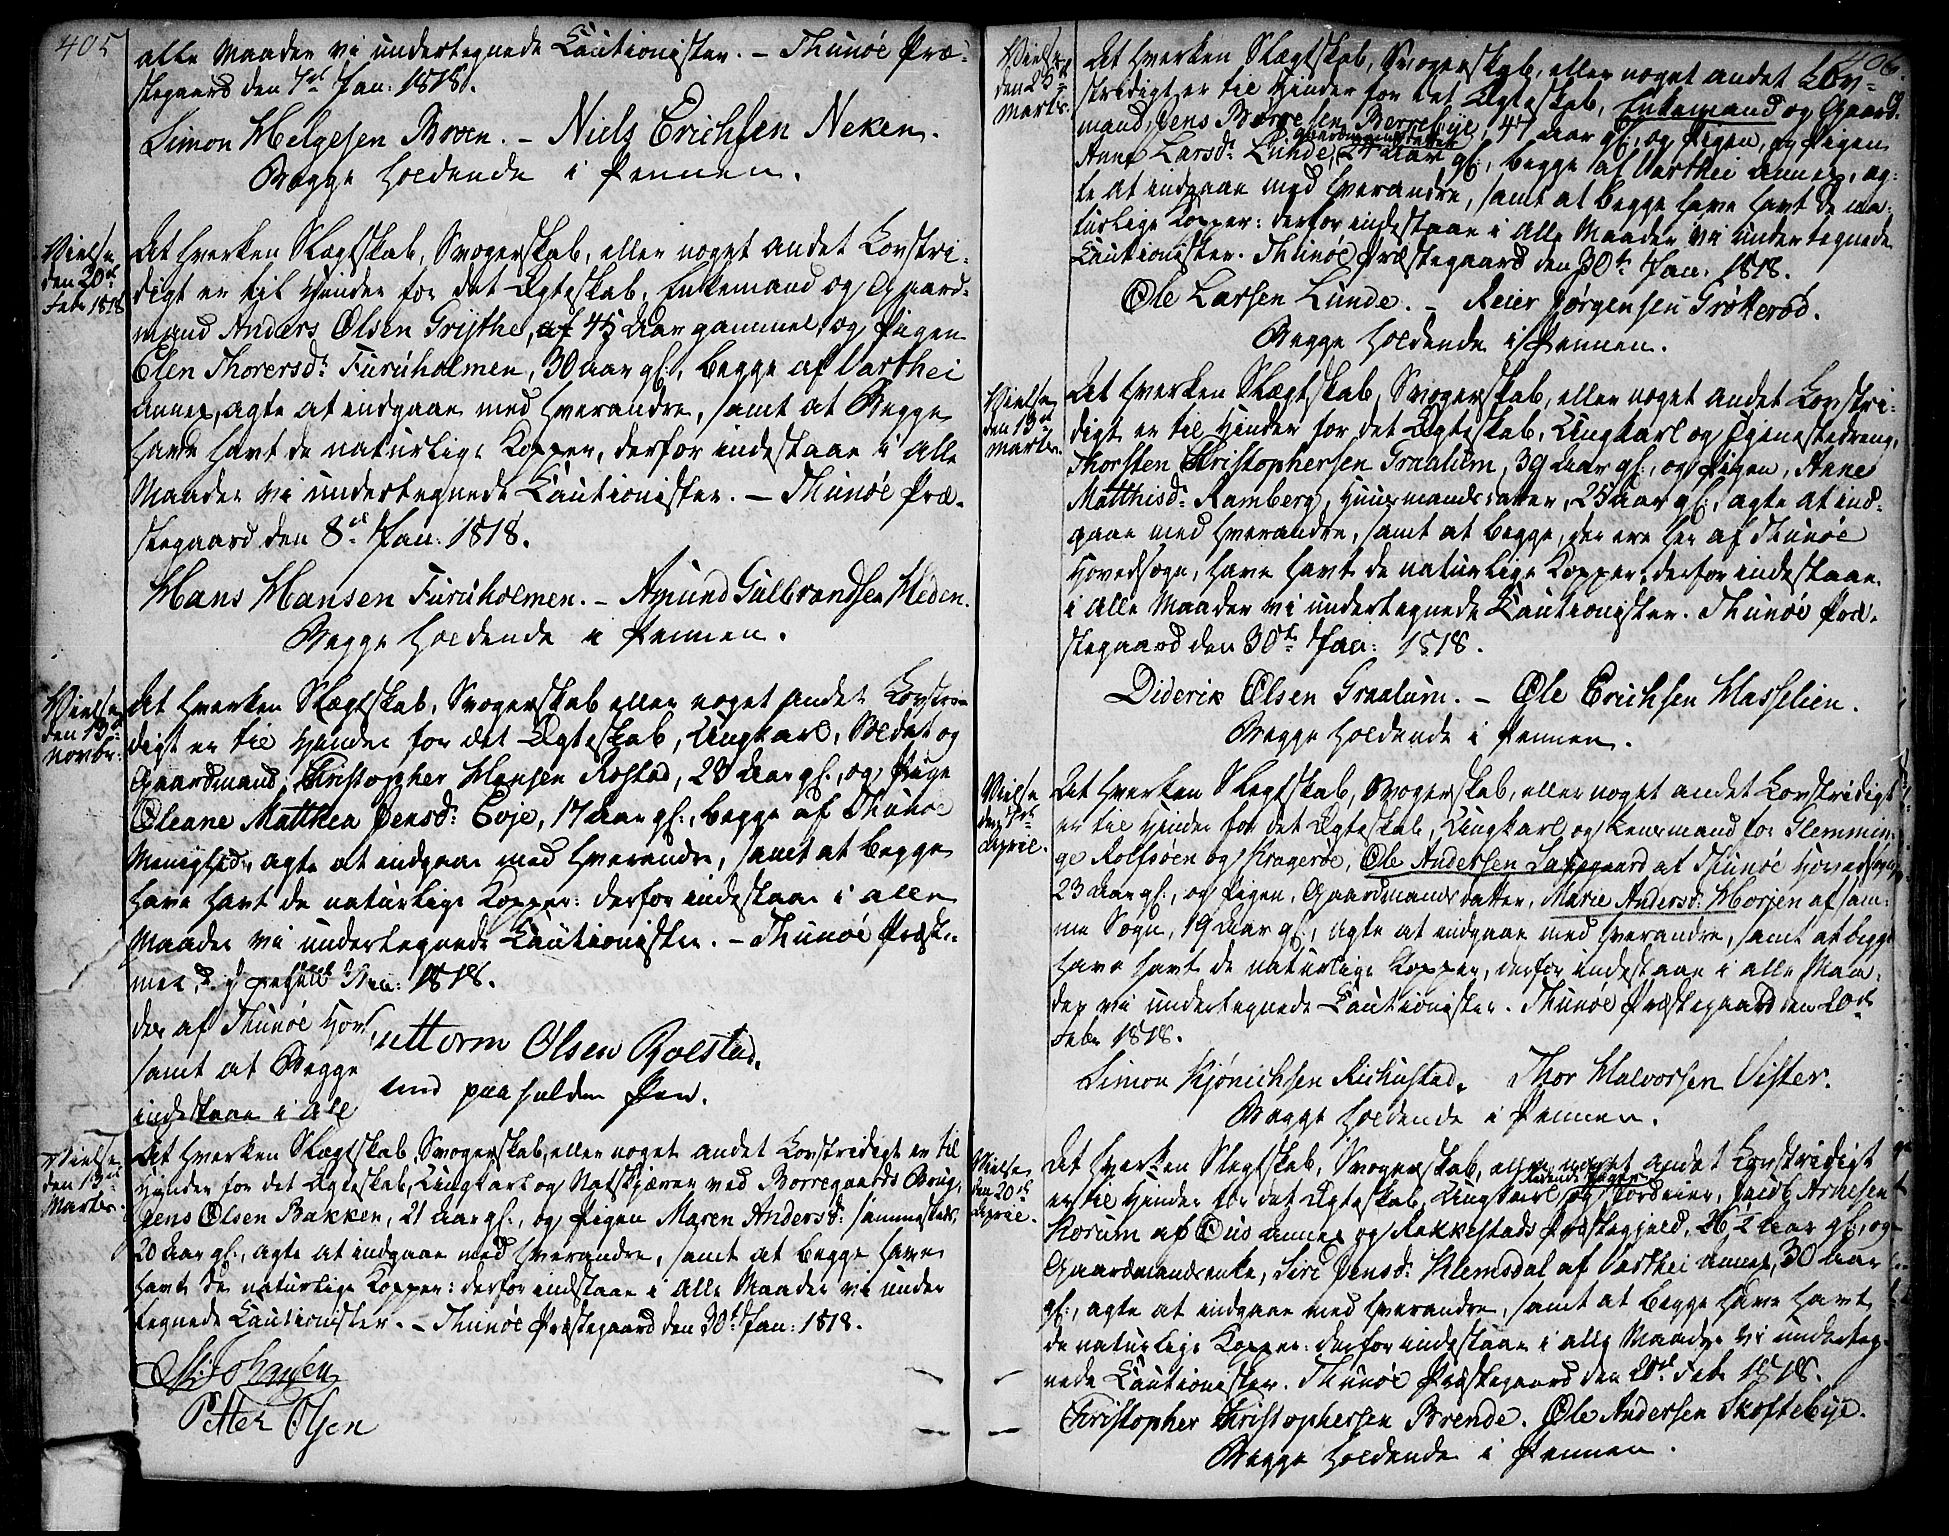 405
alle Maader vi undertegnede Cautionister. – Thunøe Præ-
stegaard den 7de Jan: 1818.
Simon Helgesen Broen. – Niels Erichsen Neken.
Begge holdende i Pennen.
Vielse
den 20de
Febr 1818
Det hverken Slægtskab, Svogerskab, eller noget andet Lovstri-
digt er til Hinder for det Ægteskab, Enkemand og Gaard-
mand Anders Olsen Grijthe, af 45 Aar gammel, og Pigen
Elen Thorersd: Furuholmen, 30 Aar gl:, begge af Varthei
Annex, agte at indgaae med hverandre, samt at Begge
have havt de naturlige Kopper, derfor indestaae i alle
Maader vi undertegnede Cautionister. – Thunøe Præ-
stegaard den 8de Jan: 1818.
Hans Hansen Furuholmen. – Amund Gulbrandsen Heden.
Begge holdende i Pennen.
Vielse
den 13de
Novbr:
Det hverken Slægtskab, Svogerskab eller noget andet Lovstri-
digt er til Hinder for det Ægteskab, Ungkarl, Soldat og
Gaardmand Christopher Hansen Rostad, 23 Aar gl:, og Pige
Oleane Matthea Jensd: Evje, 17 Aar gl:, begge af Thunøe
Menighed, agte at indgaae med hverandre, samt at begge
have havt de naturlige Kopper: derfor indestaae i alle
Maader vi undertegnede Cautionister. – Thunøe Præste-
1818.
der af Thunøe Hov
samt at Begge
indestaae i All
uttorm Olsen Rolstad.
med paaholden Pen.
Vielse
den 13de
Martr.
Det hverken Slægtskab, Svogerskab, eller noget andet Lovstridigt er til
Hinder for det Ægteskab, Ungkarl og Natskjærer ved Borregaards Brug,
Jens Olsen Bakken, 21 Aar gl:, og Pigen Maren Andersd: sammesteds,
20 Aar gl:, agte at indgaae med hverandre, samt at begge have
havt de naturlige Kopper: derfor indestaae i Alle Maader vi under
tegnede Cautionister. – Thunøe Præstegaard den 30te Jan: 1818.
Johansen
Petter Olsen
406.
Vielse
den 23de
Martr.
Det hverken Slægtskab, Svogerskab, eller noget andet Lov-
stridigt er til Hinder for det Ægteskab, Enkemand og Gaard-
mand, Jens Børresen Berrebye, 47 Aar gl:, og Pigen, og Pigen
Gaardmandsdatter
Anne Larsd: Lunde, 24 Aar gl:, begge af Varthei Annex, ag-
te at indgaae med hverandre, samt at begge have havt de na-
turlige Kopper: derfor indestaae i Alle Maader vi undertegnede
Cautionister. Thunøe Præstegaard den 30te Jan: 1818.
Ole Larsen Lunde. – Reier Jørgensen Grøtterød.
Begge holdende i Pennen.
Vielse
den 13de
Martr.
Det hverken Slægtskab, Svogerskab, eller noget andet Lovstri-
digt er til Hinder for det Ægteskab, Ungkarl og Tjenestedreng,
Thorsten Christophersen Graalum, 39 Aar gl:, og Pigen, Anne
Matthisd: Ramberg, Huusmandsdatter, 25 Aar gl:, agte at ind-
gaae med hverandre, samt at begge, der ere her af Thunøe
Hovedsogn, have havt de naturlige Kopper, derfor indestaae
i Alle Maader vi undertegnede Cautionister. Thunøe Præ-
stegaard den 30te Jan: 1818.
Diderik Olsen Graalum. – Ole Erichsen Hasselien.
Begge holdende i Pennen.
Vielse
April.
Det hverken Slegtskab, Svogerskab, eller noget andet Lovstridigt
er til Hinder for det Ægteskab, Ungkarl og Lensmand for Glemmin-
ge Rolfsøen og Kragerøe, Ole Andersen Laxegaard af Thunøe Hovedsogn,
23 Aar gl:, og Pigen, Gaardmandsdatter, Marie Andersd: Horjen af sam-
me Sogn, 19 Aar gl:, agte at indgaae med hverandre, samt at begge
have havt de naturlige Kopper, derfor indestaae i alle Maa-
der vi undertegnede Cautionister. Thunøe Præstegaard den 20de
Febr 1818.
Simon Kjønichsen Rishustad. Thor Halvorsen Vister.
Begge holdende i Pennen.
Vielse
den 20de
April.
Det hverken Slegtskab, Svogerskab, eller noget andet Lovstridigt
er til Hinder for det Ægteskab, Ungkarl og Jordeier, Jacob Arnesen
Korum af Øus Annex og Rakkestads Præstegjeld, 26 1/2 Aar gl:, og
Gaardmandsenke, Siri Jensd: Klemsdal af Varthei Annex, 30 Aar
gl:, agte at indgaae med hverandre, samt at begge have havt
de naturlige Kopper: derfor indestaae i alle Maader vi underteg-
nede Cautionister. Thunøe Præstegaard den 20de Febr 1818.
Christopher Christophersen Brende. Ole Andersen Skoftebye.
Begge holdende i Pennen.